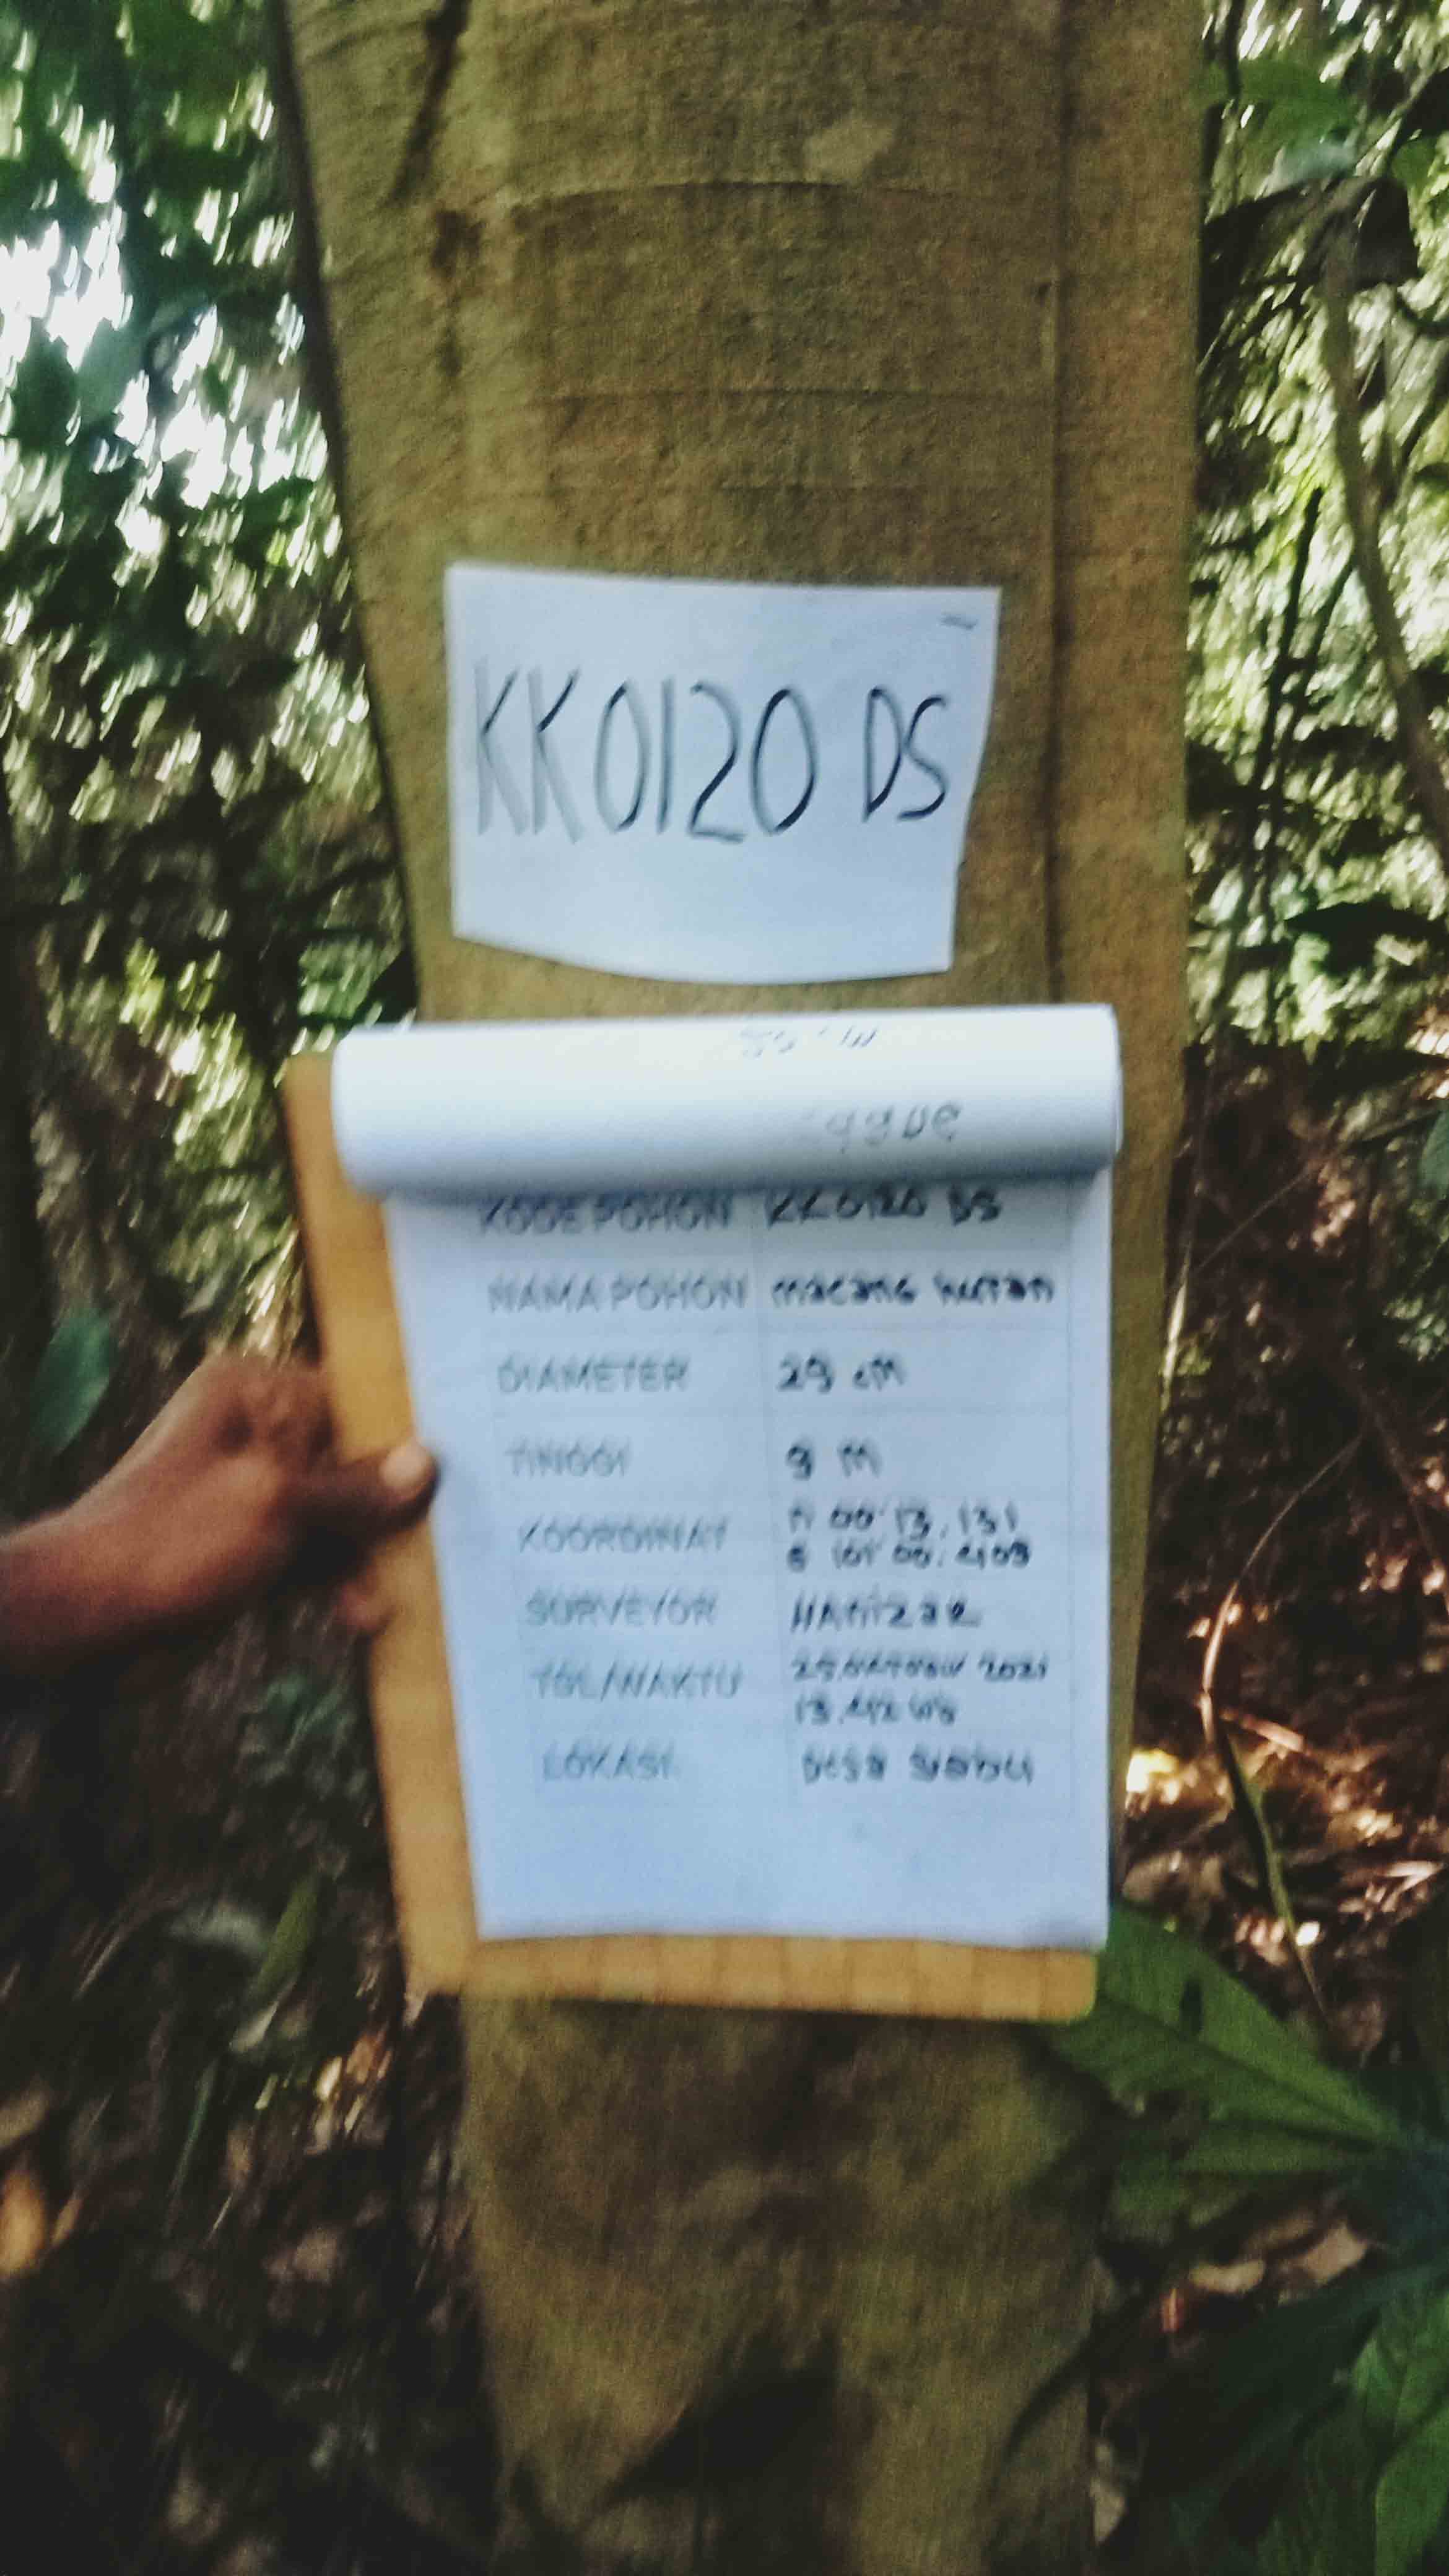 KK0120 DS
KODE POHON KK0120 DS
NAMA POHON macang hutan
DIAMETER 29 cm
TINGGI 9 m
KOORDINAT N 00° 13. 131
E 101° 00. 409
SURVEYOR HANIZAR
TGL/WAKTU 2021
LOKASI Desa Siabu